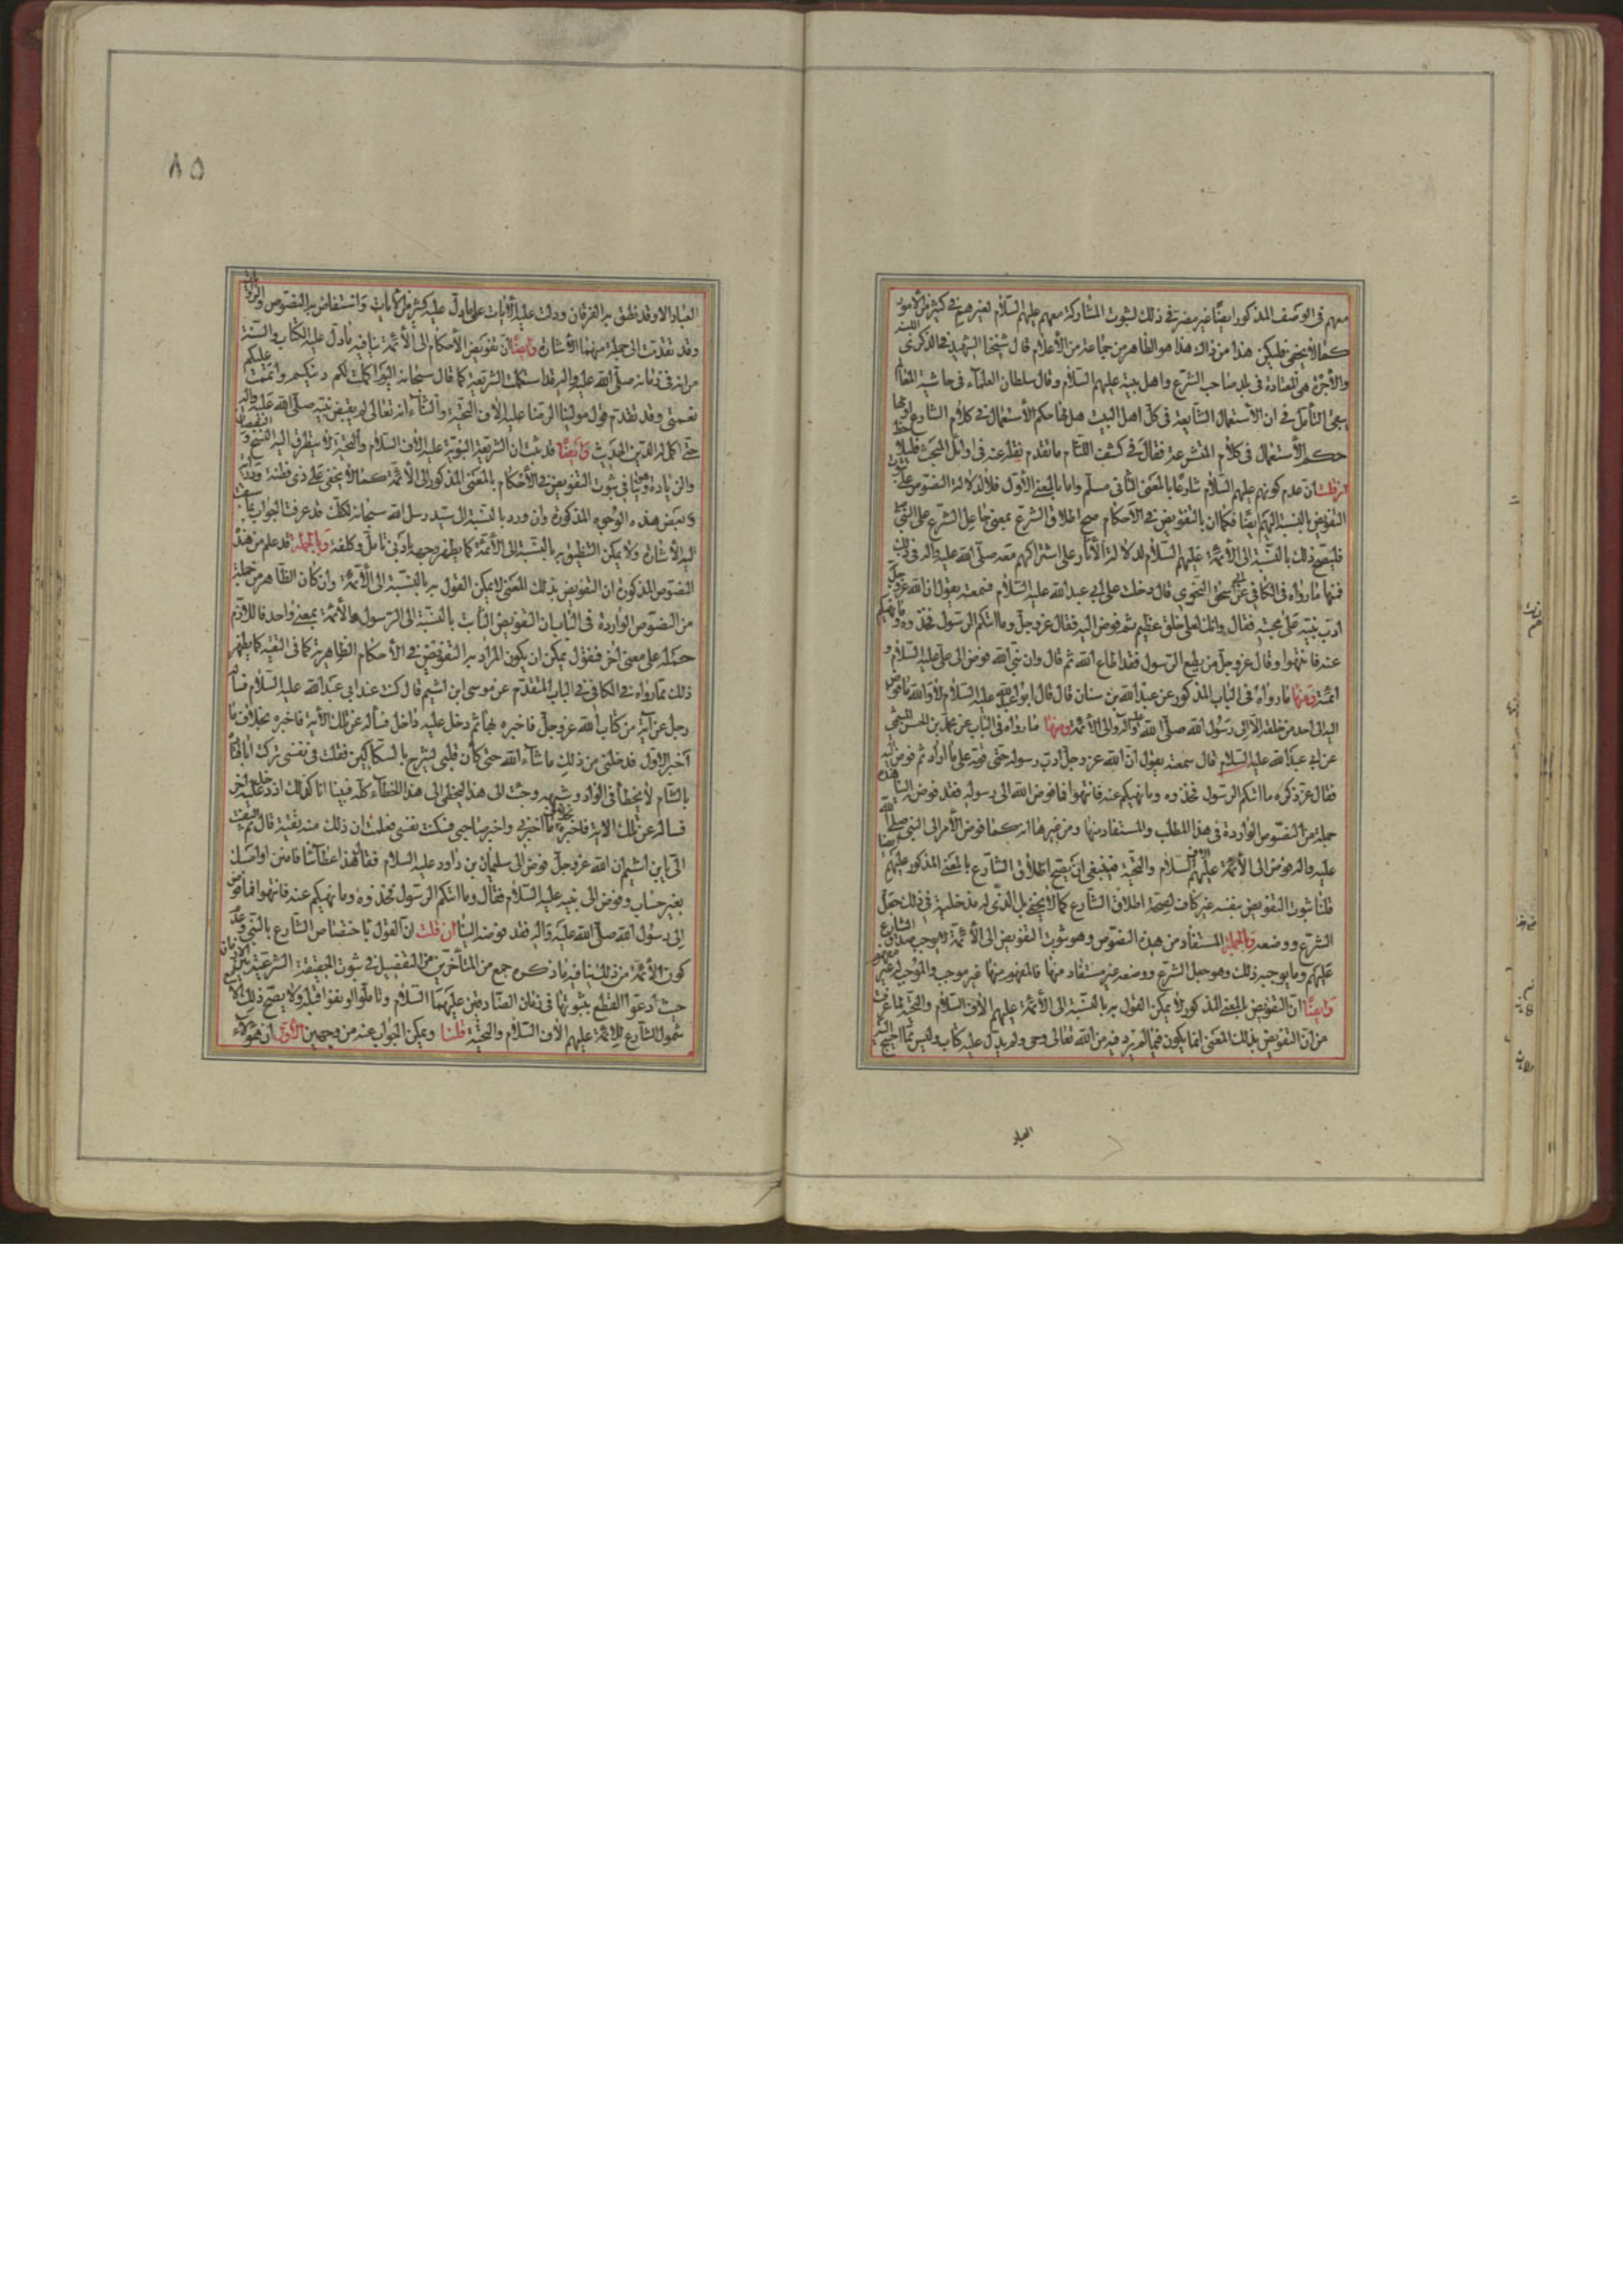 معهم فى الوصف المذكور ايضًا غير مضر فى ذلك لثبوت المشاركة معهم عليهم السّلام لغيرهم فى كثير من الأمور
كما لا يخفى فليكن هذا من ذاك هذا هو الظاهر من جماعة من الأعلام قال شيخنا الشهيد فى الذكرى
والأجرة هى المعتادة فى بلد صاحب الشرع واهل بيته عليهم السّلام وقال سلطان العلماء فى حاشية
بقى التأمل فى ان الأستعمال الشايعة فى كلام اهل البيت هل لها حكم الأستعمال فى كلام الشارع او لها
حكم الأستعمال فى كلام المتشرعة فقال فى كشف اللثام ما تقدم نقله عنه فى اوائل المبحث
ان قلت ان عدم كونهم عليهم السّلام شارعًا بالمعنى الثانى مسلّم واما بالمعنى الأوّل فلا لدلالة النصوص على ثبوت
التفويض بالنسبة اليهم ايضًا فكما ان بالتفويض فى الأحكام صح اطلاق الشرع بمعنى جاعل الشرع على النبى
فليصح ذلك بالنسبة الى الأئمة عليهم السّلام لدلالة الأثار على اشتراكهم معه صلى الله عليه وآله فى ذلك
فمنها ما رواه فى الكافى عن ابى اسحق النحوى قال دخلت على ابى عبد الله عليه السّلام فسمعته يقول ان الله عز وجل
ادّب نبيّه على محبته فقال وانك لعلى خلق عظيم ثم فوض اليه فقال عز وجل وما اتيكم الرسول فخذوه وما نهيكم
عنه فانتهوا وقال عز وجل من يطع الرسول فقد اطاع الله ثم قال وان نبى الله فوض الى على عليه السّلام و
ائمته ومنها ما رواه فى الباب المذكور عن عبد الله بن سنان قال قال ابو عبد الله عليه السّلام لا والله ما فوض
الله الى احد من خلقه الا الى رسول الله صلى الله عليه وآله والى الأئمة ومنها ما رواه فى الباب عن محمد بن الحسن الميثمى
عن ابى عبد الله عليه السلام قال سمعته يقول ان الله عز وجل ادّب رسوله حتى قومه على ما اراد ثم فوض اليه
فقال عز ذكره ما اتيكم الرسول فخذوه وما نهيكم عنه فانتهوا فما فوض الله الى رسوله فقد فوضه الينا هذه
جملة من النصوص الواردة فى هذا المطلب والمستفاد منها ومن غيرها انه كما فوض الأمر الى النبى صلى الله
عليه وآله فوض الى الأئمة عليهم السّلام والتحية فينبغى ان يصح اطلاق الشارع بالمعنى المذكور عليهم ايضا
قلنا ثبوت التفويض بنفسه غير كاف لصحة اطلاق الشارع كما لا يخفى بل الذى له مدخلية فى ذلك جعل
الشرع ووضعه وبالجملة المستفاد من هذه النصوص وهو ثبوت التفويض الى الأئمة لا يوجب صدق الشارع
عليهم وما يوجبه ذلك وهو جعل الشرع ووضعه غير مستفاد منها فالمفهوم منها غير موجب والموجب له غير مفهوم
وايضًا ان التفويض بالمعنى المذكور لا يمكن القول به بالنسبة الى الأئمة عليهم الاف السّلام والتحية لما عرفت
من ان التفويض بذلك المعنى انما يكون فيما لم يرد فيه من الله تعالى وحى ولم يدل عليه كتاب وليس مما احتيج اليه
العباد
٨٥
العباد الا وقد نطق به الفرقان ودلت عليه الأيات على ما دل عليه كثير من الأيات واستفاض به النصوص والروايات
وقد تقدمت الى جملة منهما الأشارة وايضًا ان تفويض الأحكام الى الأئمة ينافيه ما دل عليه الكتاب والسنة
من انه فى زمانه صلى الله عليه وآله قد استكملت الشريعة كما قال سبحانه اليوم اكملت لكم دينكم واتممت عليكم
نعمتى وقد تقدم قول مولينا الرضا عليه الاف التحية والثناء انه تعالى لم يقبض نبيه صلى الله عليه وآله
حتى اكمل له الدين الحديث وايضًا قد ثبت ان الشريعة النبوية عليه الاف السّلام والتحية لا يتطرق اليه النسخ والنقصان
والزيادة وينافى ثبوت التفويض فى الأحكام بالمعنى المذكور الى الأئمة كما لا يخفى على ذى فطنة
وبعض هذه الوجوه المذكورة وان ورد بالنسبة الى سيد رسل الله سبحانه لكنك قد عرفت الجواب عما
اليه الأشارة ولا يمكن التطبيق به بالنسبة الى الأئمة كما يظهر وجهه بادنى تامل وكلفة وبالجملة قد علم من هذه
النصوص المذكورة ان التفويض بذلك المعنى لا يمكن القول به بالنسبة الى الأئمة وان كان الظاهر من جملة
من النصوص الواردة فى الباب ان التفويض الثابت بالنسبة الى الرسول والأئمة بمعنى واحد فاللازم
حمله على معنى اخر فنقول يمكن ان يكون المراد به التفويض فى الأحكام الظاهرية كما فى التقية كما يظهر
ذلك مما رواه فى الكافى فى الباب المتقدم عن موسى ابن اشيم قال كنت عند ابى عبد الله عليه السّلام فساله
رجل عن آية من كتاب الله عز وجل فاخبره بها ثم دخل عليه داخل فسأله عن تلك الأية فاخبره بخلاف ما
اخبر الأول فدخلنى من ذلك ما شاء الله حتى كأن قلبى يشرح بالسكاكين فقلت فى نفسى تركت ابا قتادة
بالشام لا يخطأ فى الواو وشبهه وجئت الى هذا يخطى هذا الخطاء كله فبينا انا كذلك اذ دخل عليه اخر
فسأله عن تلك الأية فاخبره بخلاف ما اخبرنى واخبر صاحبى فسكنت نفسى فعلمت ان ذلك منه تقية قال ثم التفت
الى يا بن اشيم ان الله عز وجل فوض الى سليمان بن داود عليه السلام فقال هذا عطاءنا فامنن او امسك
بغير حساب وفوض الى نبيه عليه السّلام فقال وما اتيكم الرسول فخذوه وما نهيكم عنه فانتهوا فما فوض
الى رسول الله صلى الله عليه وآله فقد فوضه الينا ان قلت ان القول باختصاص الشارع بالنبى وعدم
كون الأئمة من ذلك ينافيه ما ذكره جمع من المتأخرين من التفصيل فى ثبوت الحقيقة الشرعية بين الأزمان
حيث ادعوا القطع بثبوتها فى زمان الصادقين عليهما السّلام وتاملوا او نفوا قبله ولا يصح ذلك الا
شمول الشارع للأئمة عليهم الاف السّلام والتحية قلنا ويمكن الجواب عنه من وجهين الأول ان هؤلاء